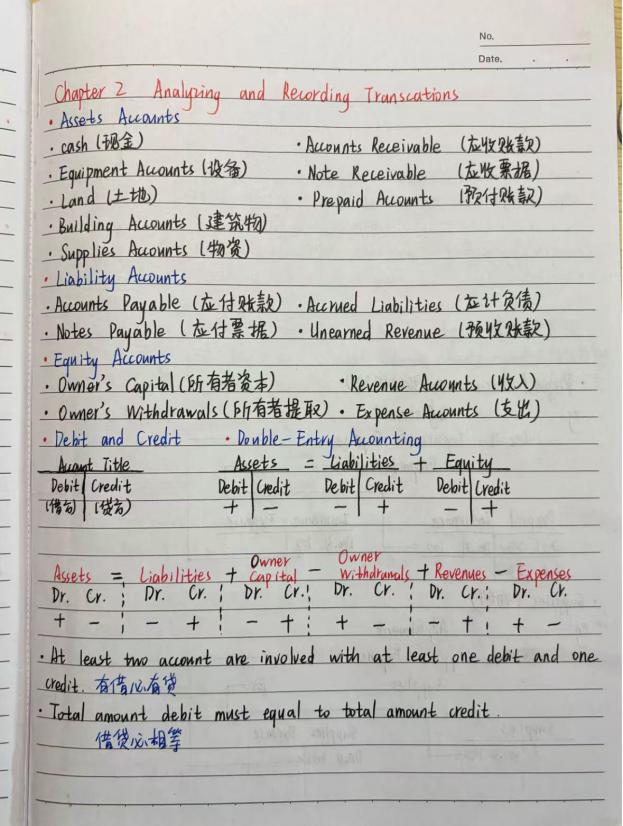 No.
Date. . .
Chapter 2 Analyzing and Recording Transcations
· Assets Accounts
· cash (现金) · Accounts Receivable (应收账款)
· Equipment Accounts (设备) · Note Receivable (应收票据)
· Land (土地) · Prepaid Accounts (预付账款)
· Building Accounts (建筑物)
· Supplies Accounts (物资)
· Liability Accounts
· Accounts Payable (应付账款) · Accrued Liabilities (应计负债)
· Notes Payable (应付票据) · Unearned Revenue (预收账款)
· Equity Accounts
· Owner's Capital (所有者资本) · Revenue Accounts (收入)
· Owner's Withdrawals (所有者提取) · Expense Accounts (支出)
· Debit and Credit · Double-Entry Accounting
Account Title Assets = Liabilities + Equity
Debit Credit Debit Credit Debit Credit Debit Credit
(借方) (贷方) + - - + - +
Assets = Liabilities + Owner Capital - Owner Withdrawals + Revenues - Expenses
Dr. Cr. Dr. Cr. Dr. Cr. Dr. Cr. Dr. Cr. Dr. Cr.
+ - - + - + + - - + + -
· At least two account are involved with at least one debit and one
credit. 有借必有贷
· Total amount debit must equal to total amount credit.
借贷必相等